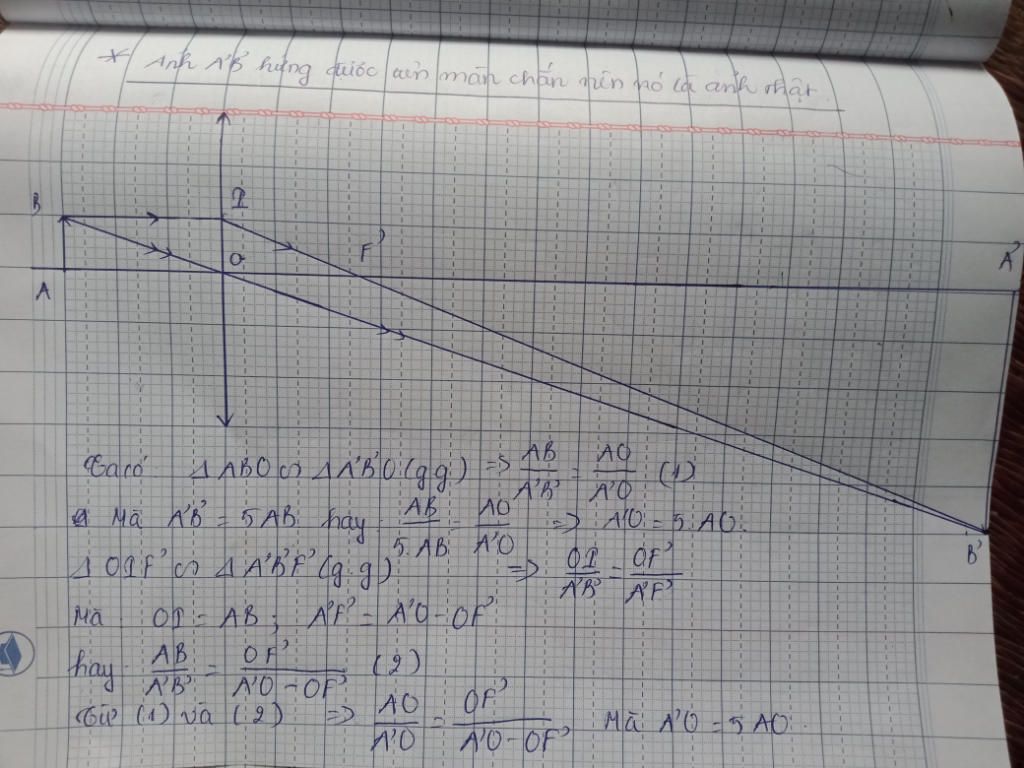 * Ảnh A'B' hứng được trên màn chắn nên nó là ảnh thật.
B I
O F' A'
A
B'
Ta có ΔABO ∽ ΔA'B'O (g.g) => AB/A'B' = AO/A'O (1)
Mà A'B' = 5AB hay AB/5.AB = AO/A'O => A'O = 5.AO.
ΔOIF' ∽ ΔA'B'F' (g.g) => OI/A'B' = OF'/A'F'
Mà OI = AB; A'F' = A'O - OF'
hay AB/A'B' = OF'/A'O - OF' (2)
Từ (1) và (2) => AO/A'O = OF'/A'O - OF' Mà A'O = 5AO.